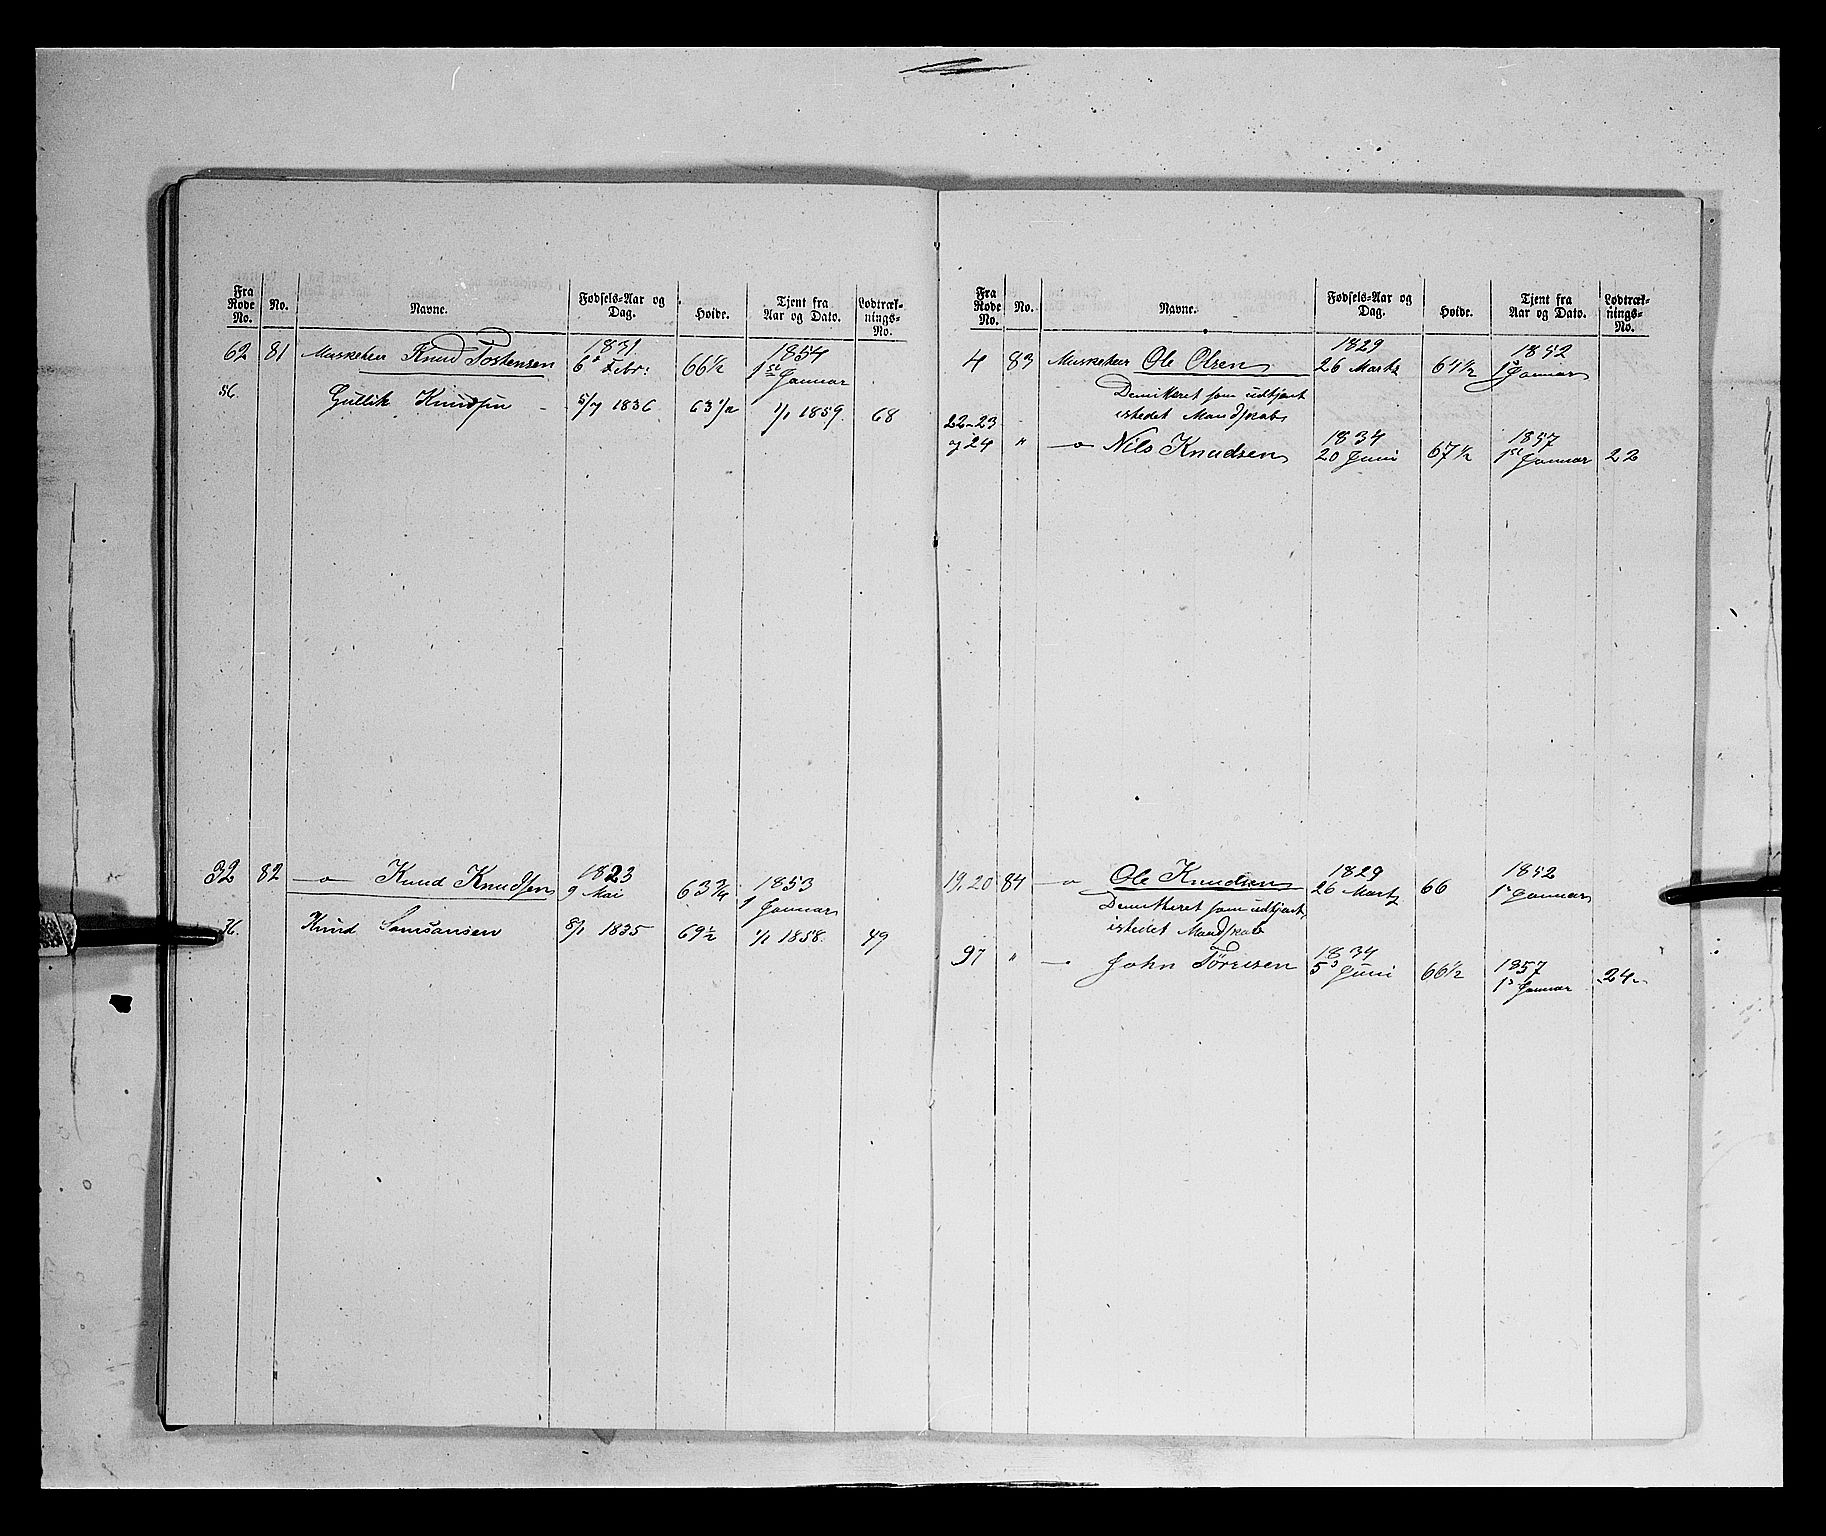 Fra Rode No. No. Navne. Fødsels-Aar og Dag. Hoide. Tjent fra Aar og Dato. Lodtræk-nings-No.
62 81 Musketeer Knud Tostensen 1831 6te Febr: 66½ 1854 1ste Januar
56. Gullik Knudsen 5/7 1836 63 1/2 1/1 1859. 68
32 82 —o— Knud Knudsen 1823 9 Mai 63¾ 1853 1 Januar
36. Knud Samsonsen 8/1 1835 69½ 1/1 1858. 49
Fra Rode No. No. Navne. Fødsels-Aar og Dag. Hoide. Tjent fra Aar og Dato. Lodtræk-nings-No.
4 83 Musketeer Ole Olsen 1829 26 Marts 64½ 1852 1s Januar
Demitteret som udtjent
istedet Mandskab
22-23
og 24 " —o Nils Knudsen 1834 20 Juni 67½ 1857 1ste Januar 22
19, 20 84 —o Ole Knudsen 1829 26 Marts 66 1852 1s Januar
Demitteret som udtjent
istedet Mandskab
97 " — John Tørrisen 1834 5s Juni 66½ 1857 1s Januar 24